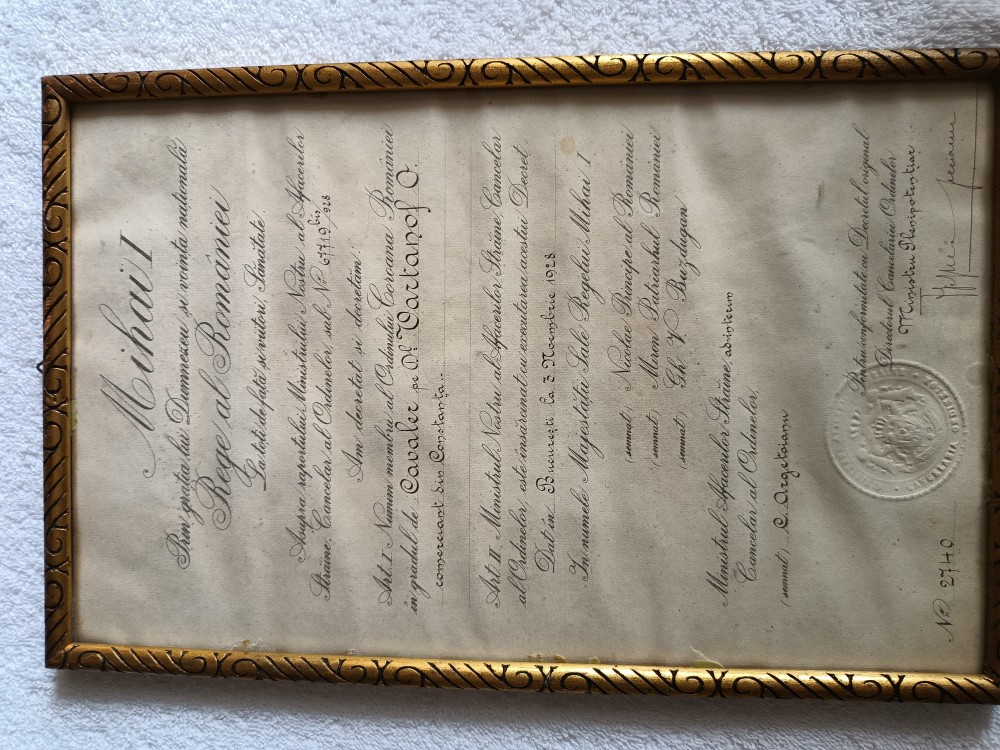 Mihai I
Prin grația lui Dumnezeu și voința națională
Rege al României
La toți de față și viitori, Sănătate
Asupra raportului Ministrului Nostru al Afacerilor
Străine, Cancelar al Ordinelor, sub No 6779 bis/928
Am decretat și decretăm:
Art. I. Numim membru al Ordinului Coroana României
în gradul de Cavaler pe Dl. Vartanof O.
comerciant din Constanța..
Art. II Ministrul Nostru al Afacerilor Străine, Cancelar
al Ordinelor, este însărcinat cu executarea acestui Decret.
Dat în București la 3 Noembrie 1928
In numele Majestății Sale Regelui Mihai I
(semnat) Nicolae Principe al României
(semnat) Miron Patriarhul României
(semnat) Gh. V. Buzdugan
Ministrul Afacerilor Străine, ad interim
Cancelar al Ordinelor,
(semnat) C. Argetoianu
Pentru conformitate cu Decretul original
Directorul Cancelariei Ordinelor
Ministru Plenipotențiar
No 2740